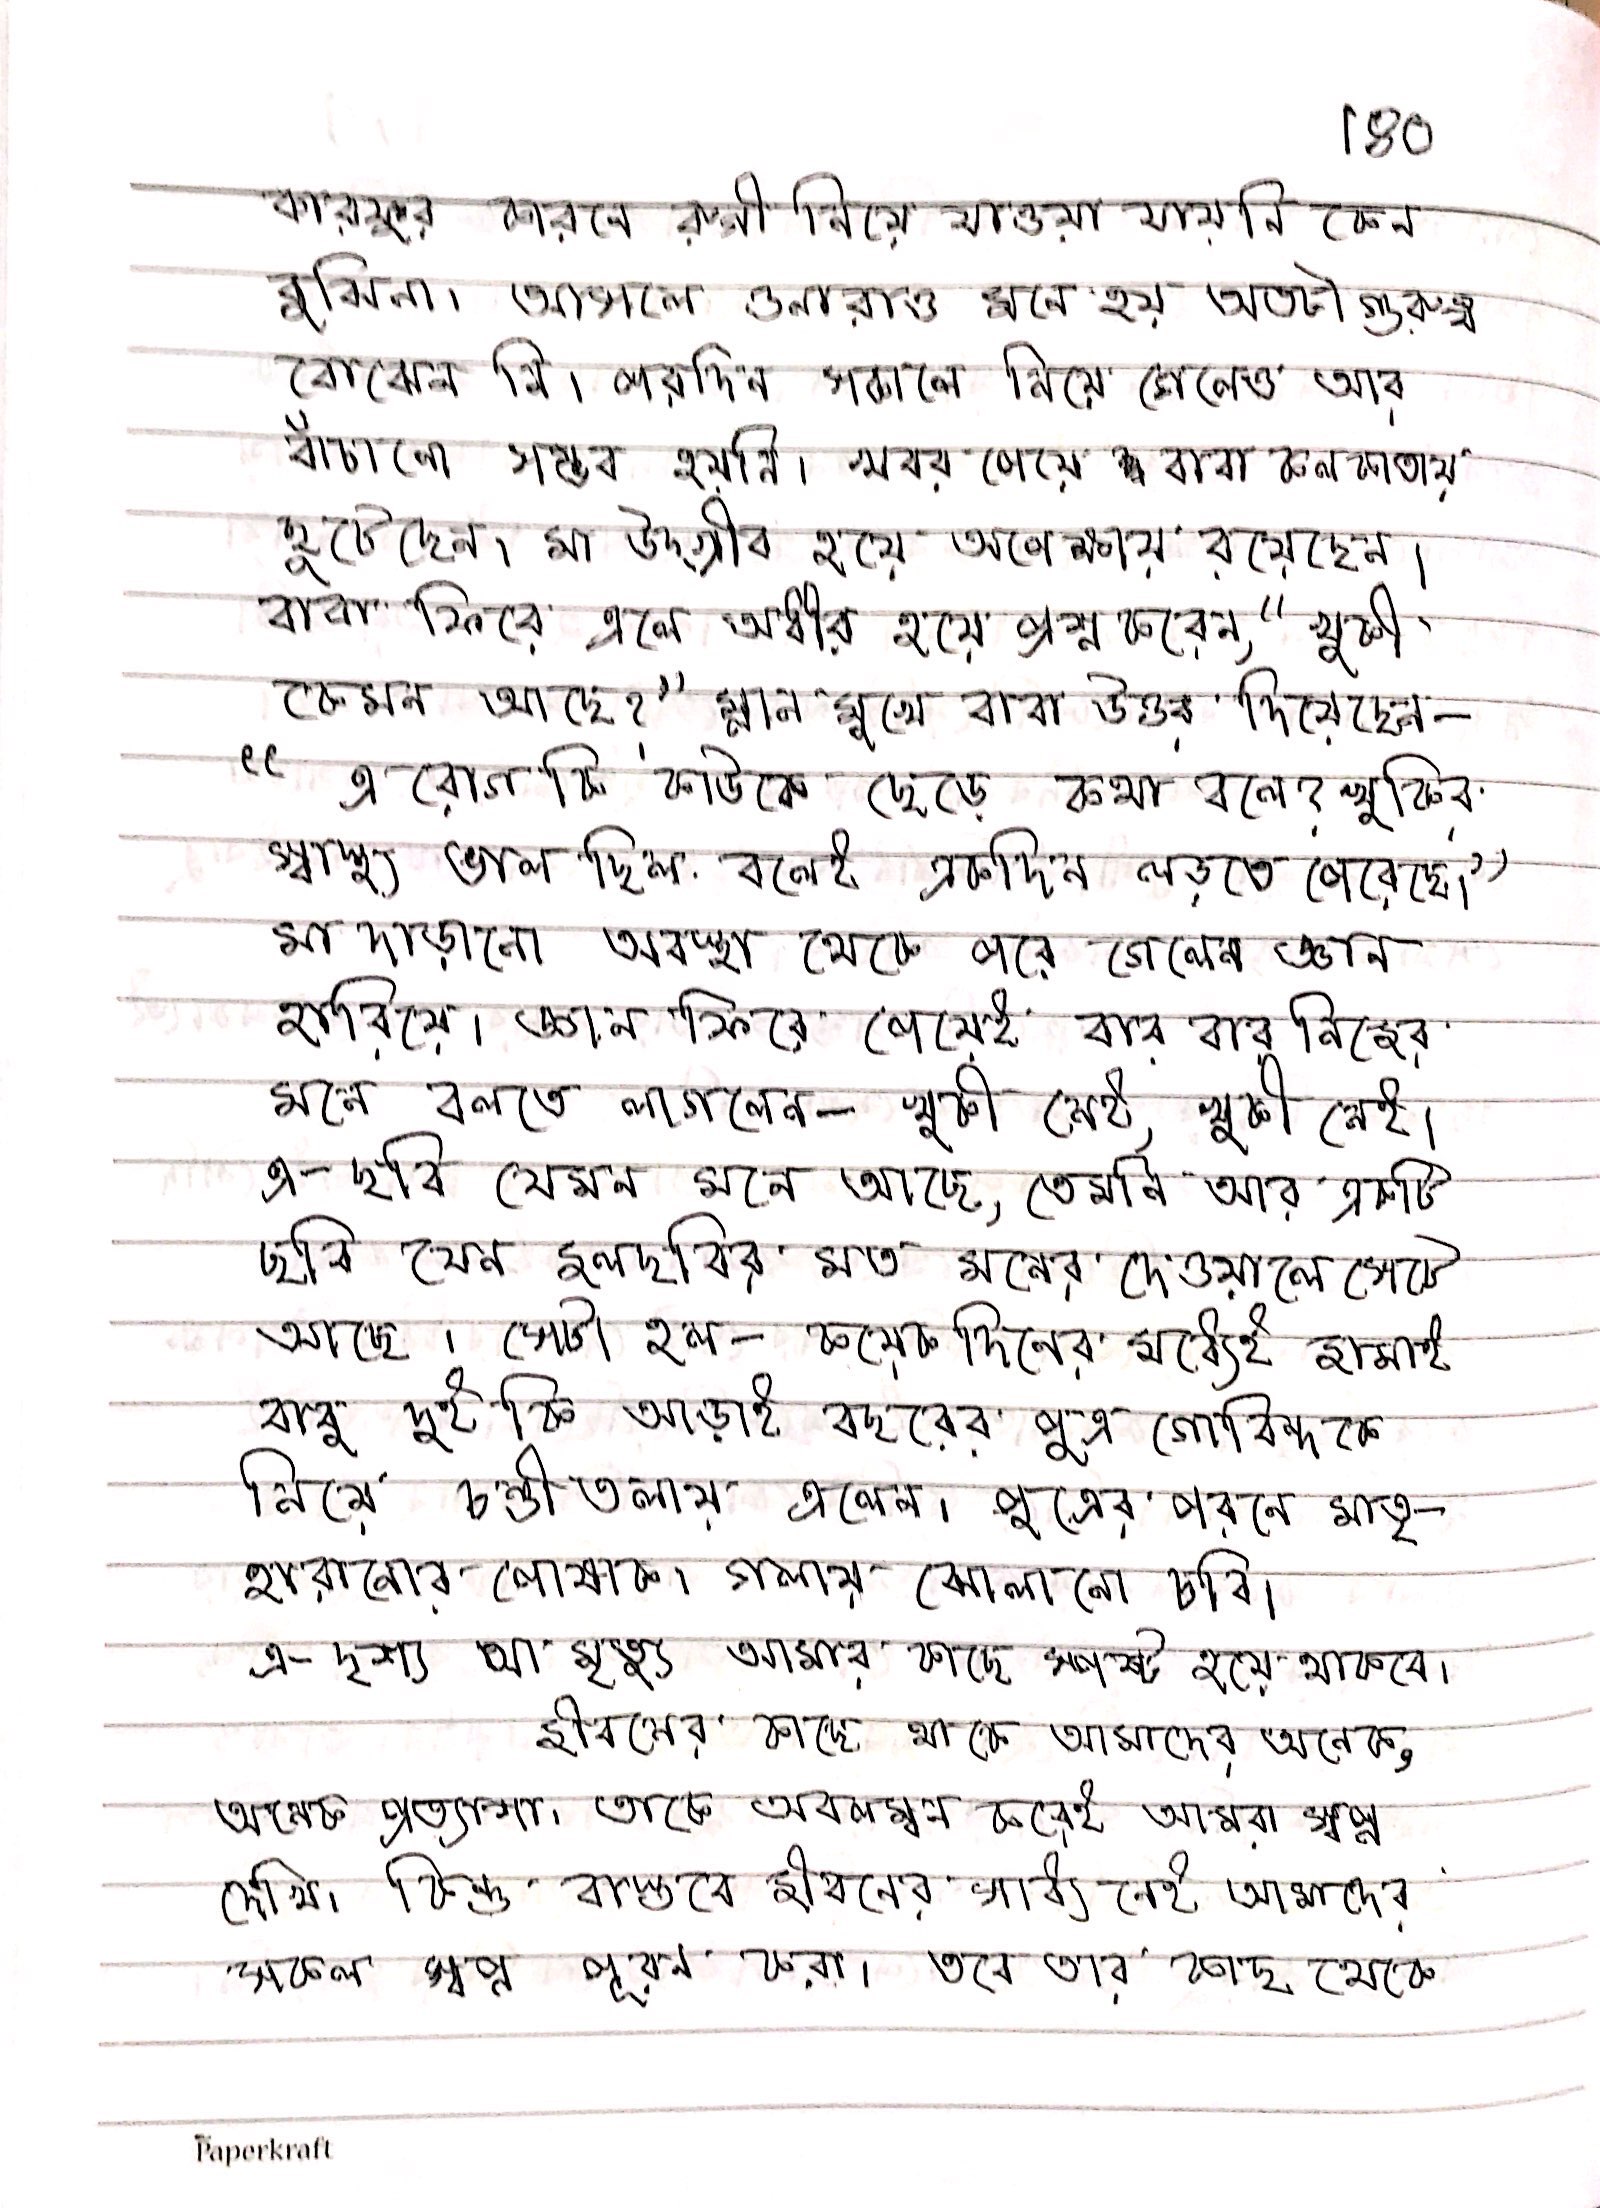 180
কারফুর কারনে রুগী নিয়ে যাওয়া যায়নি কেন
বুঝিনা। আসলে ওনারাও মনে হয় অতটা গুরুত্ব
বোঝেন নি। পরদিন সকালে নিয়ে গেলেও আর
বাঁচানো সম্ভব হয়নি। খবর পেয়ে বাবা কলকাতায়
ছুটেছেন। মা উদ্গ্রীব হয়ে অপেক্ষায় রয়েছেন।
বাবা ফিরে এলে অধীর হয়ে প্রশ্ন করেন, “খুকী
কেমন আছে?” ম্লান মুখে বাবা উত্তর দিয়েছেন–
“এ রোগ কি কাউকে ছেড়ে কথা বলে? খুকির
স্বাস্থ্য ভাল ছিল বলেই একদিন লড়তে পেরেছে।”
মা দাড়ানো অবস্থা থেকে পরে গেলেন জ্ঞান
হারিয়ে। জ্ঞান ফিরে পেয়েই বার বার নিজের
মনে বলতে লাগলেন– খুকী নেই, খুকী নেই।
এ-ছবি যেমন মনে আছে, তেমনি আর একটি
ছবি যেন জলছবির মত মনের দেওয়ালে সেটে
আছে। সেটা হল– কয়েক দিনের মধ্যেই জামাই
বাবু দুই কি আড়াই বছরের পুত্র গোবিন্দকে
নিয়ে চণ্ডীতলায় এলেন। পুত্রের পরনে মাতৃ-
হারানোর পোষাক। গলায় ঝোলানো চাবি।
এ-দৃশ্য আমৃত্যু আমার কাছে স্পষ্ট হয়ে থাকবে।
জীবনের কাছে থাকে আমাদের অনেক,
অনেক প্রত্যাশা। তাকে অবলম্বন করেই আমরা স্বপ্ন
দেখি। কিন্তু বাস্তবে জীবনের সাধ্য নেই আমাদের
সকল স্বপ্ন পূরণ করা। তবে তার কাছ থেকে
Paperkraft